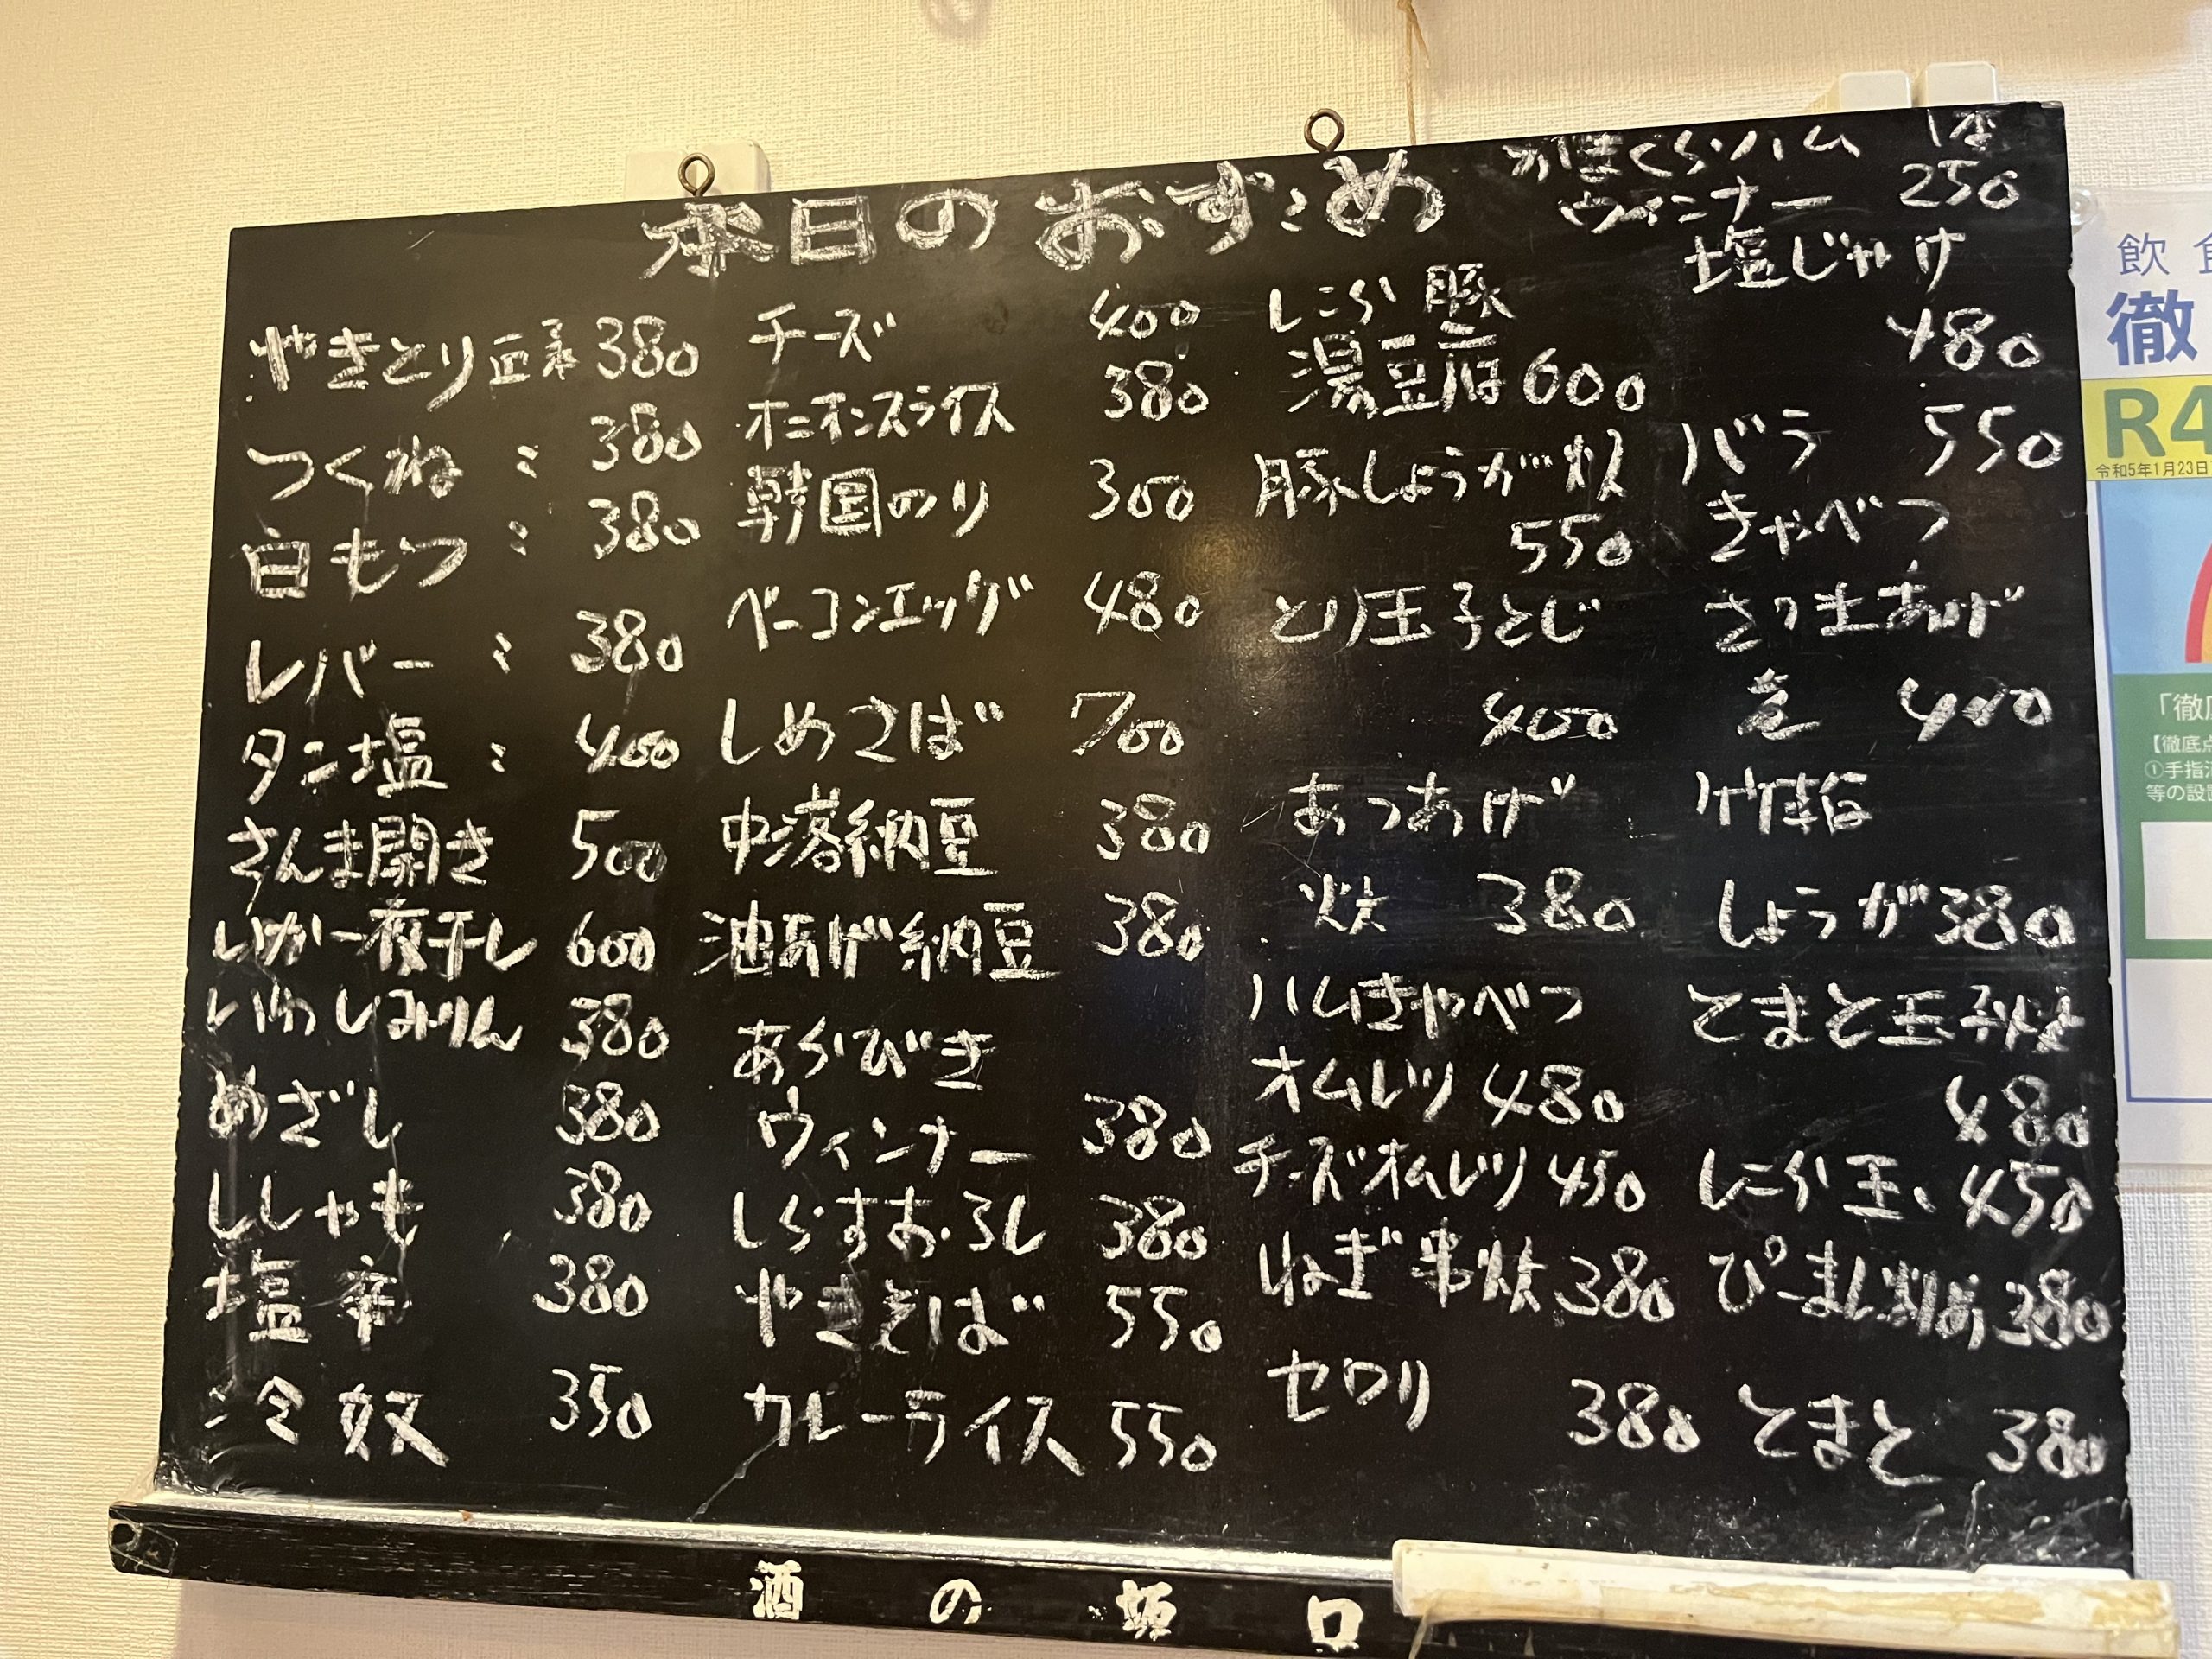 本日のおすゝめ
かまくらハム 1本
ウィンナー 250
塩じゃけ
480
バラ 550
きゃべつ
さつま あげ
煮 400
竹輪
しょうが 380
とまと玉子炒
480
にら玉 450
ぴーまん 380
とまと 380
やきとり 380
つくね 〃 380
白もつ 〃 380
レバー 〃 380
タン塩 〃 400
さんま開き 500
いか一夜干し 600
いわしみりん 380
めざし 380
ししゃも 380
塩辛 380
冷奴 350
チーズ 400
オニオンスライス 380
韓国のり 300
ベーコンエッグ 480
しめさば 700
中落納豆 380
油あげ納豆 380
あらびき
ウィンナー 380
しらすおろし 380
やきそば 550
カレーライス 550
にら豚
湯豆腐 600
豚しょうが炊
550
とり玉子とじ
400
あつあげ
炊 380
ハムきゃべつ
オムレツ 480
チーズオムレツ 450
ねぎ串焼 380
セロリ
380
酒の坂口
飲食
徹
R4
令和5年1月23日
「徹底
【徹底点
①手指消
等の設置